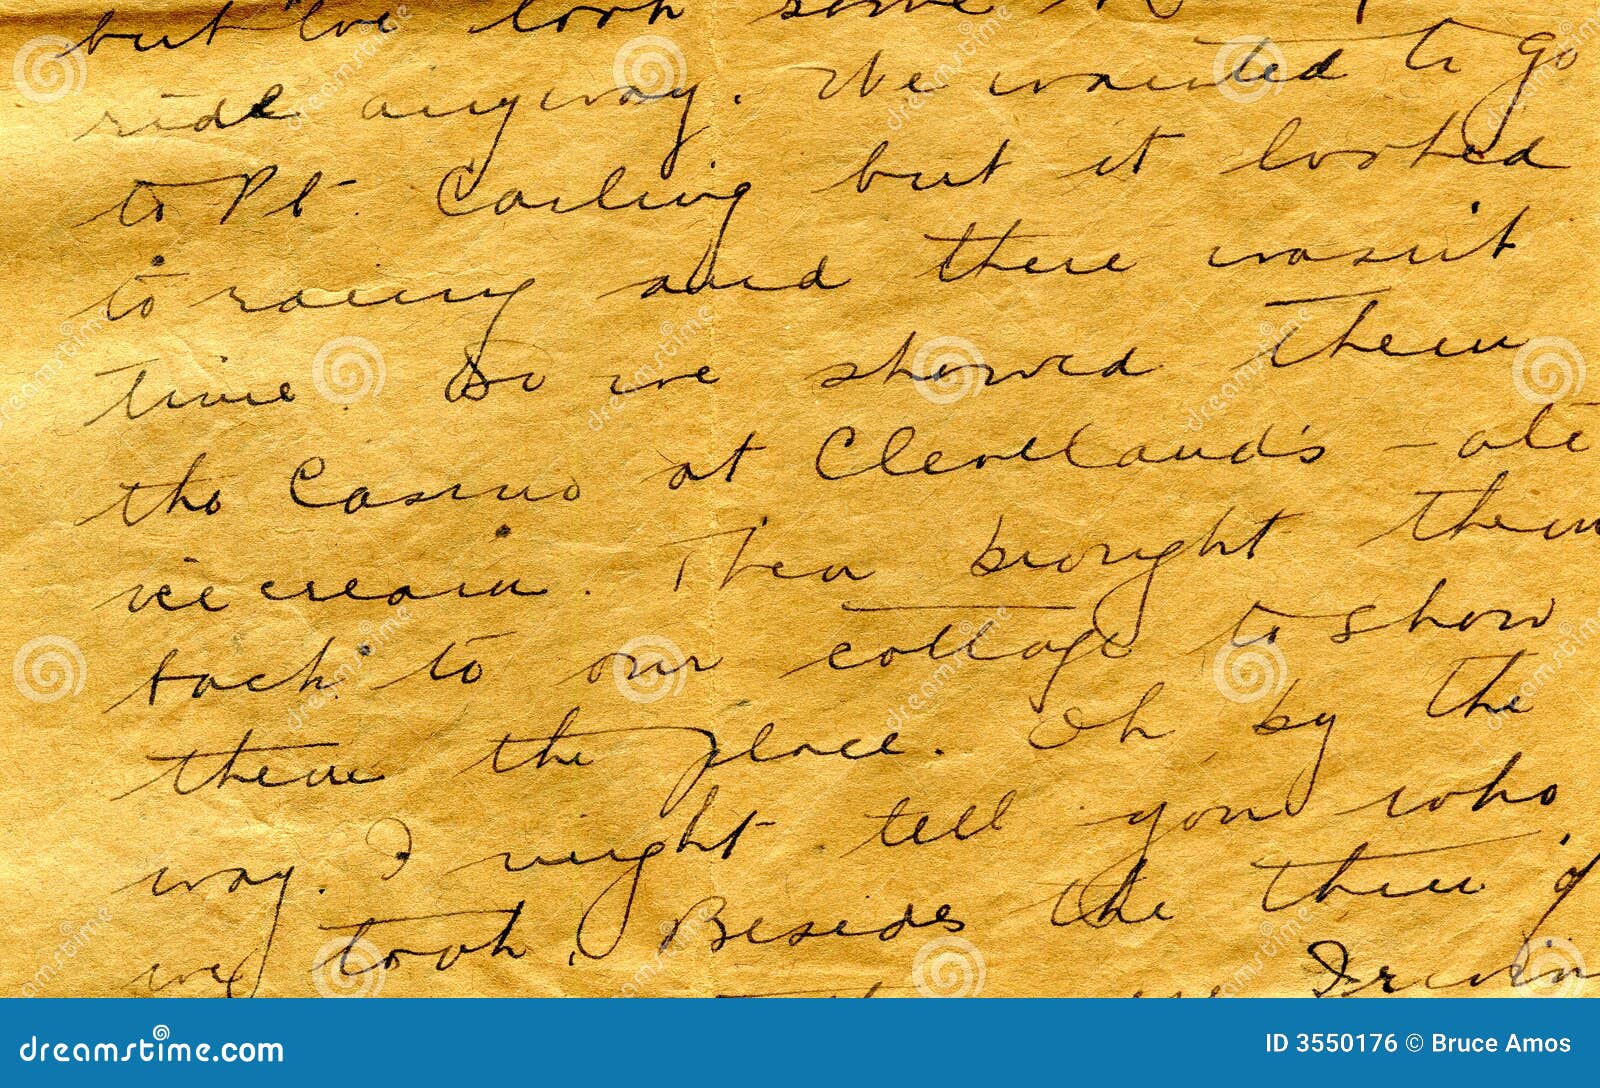 but we took some
ride anyway. We wanted to go
to Pt. Carling but it looked
to rainy and there wasn't
time. So we showed them
the Casino at Cleveland's - ate
ice cream. Then brought them
back to our cottage to show
them the place. Oh, by the
way. I might tell you who
we took. Besides the three of
Irwin
dreamstime.com
ID 3550176 © Bruce Amos